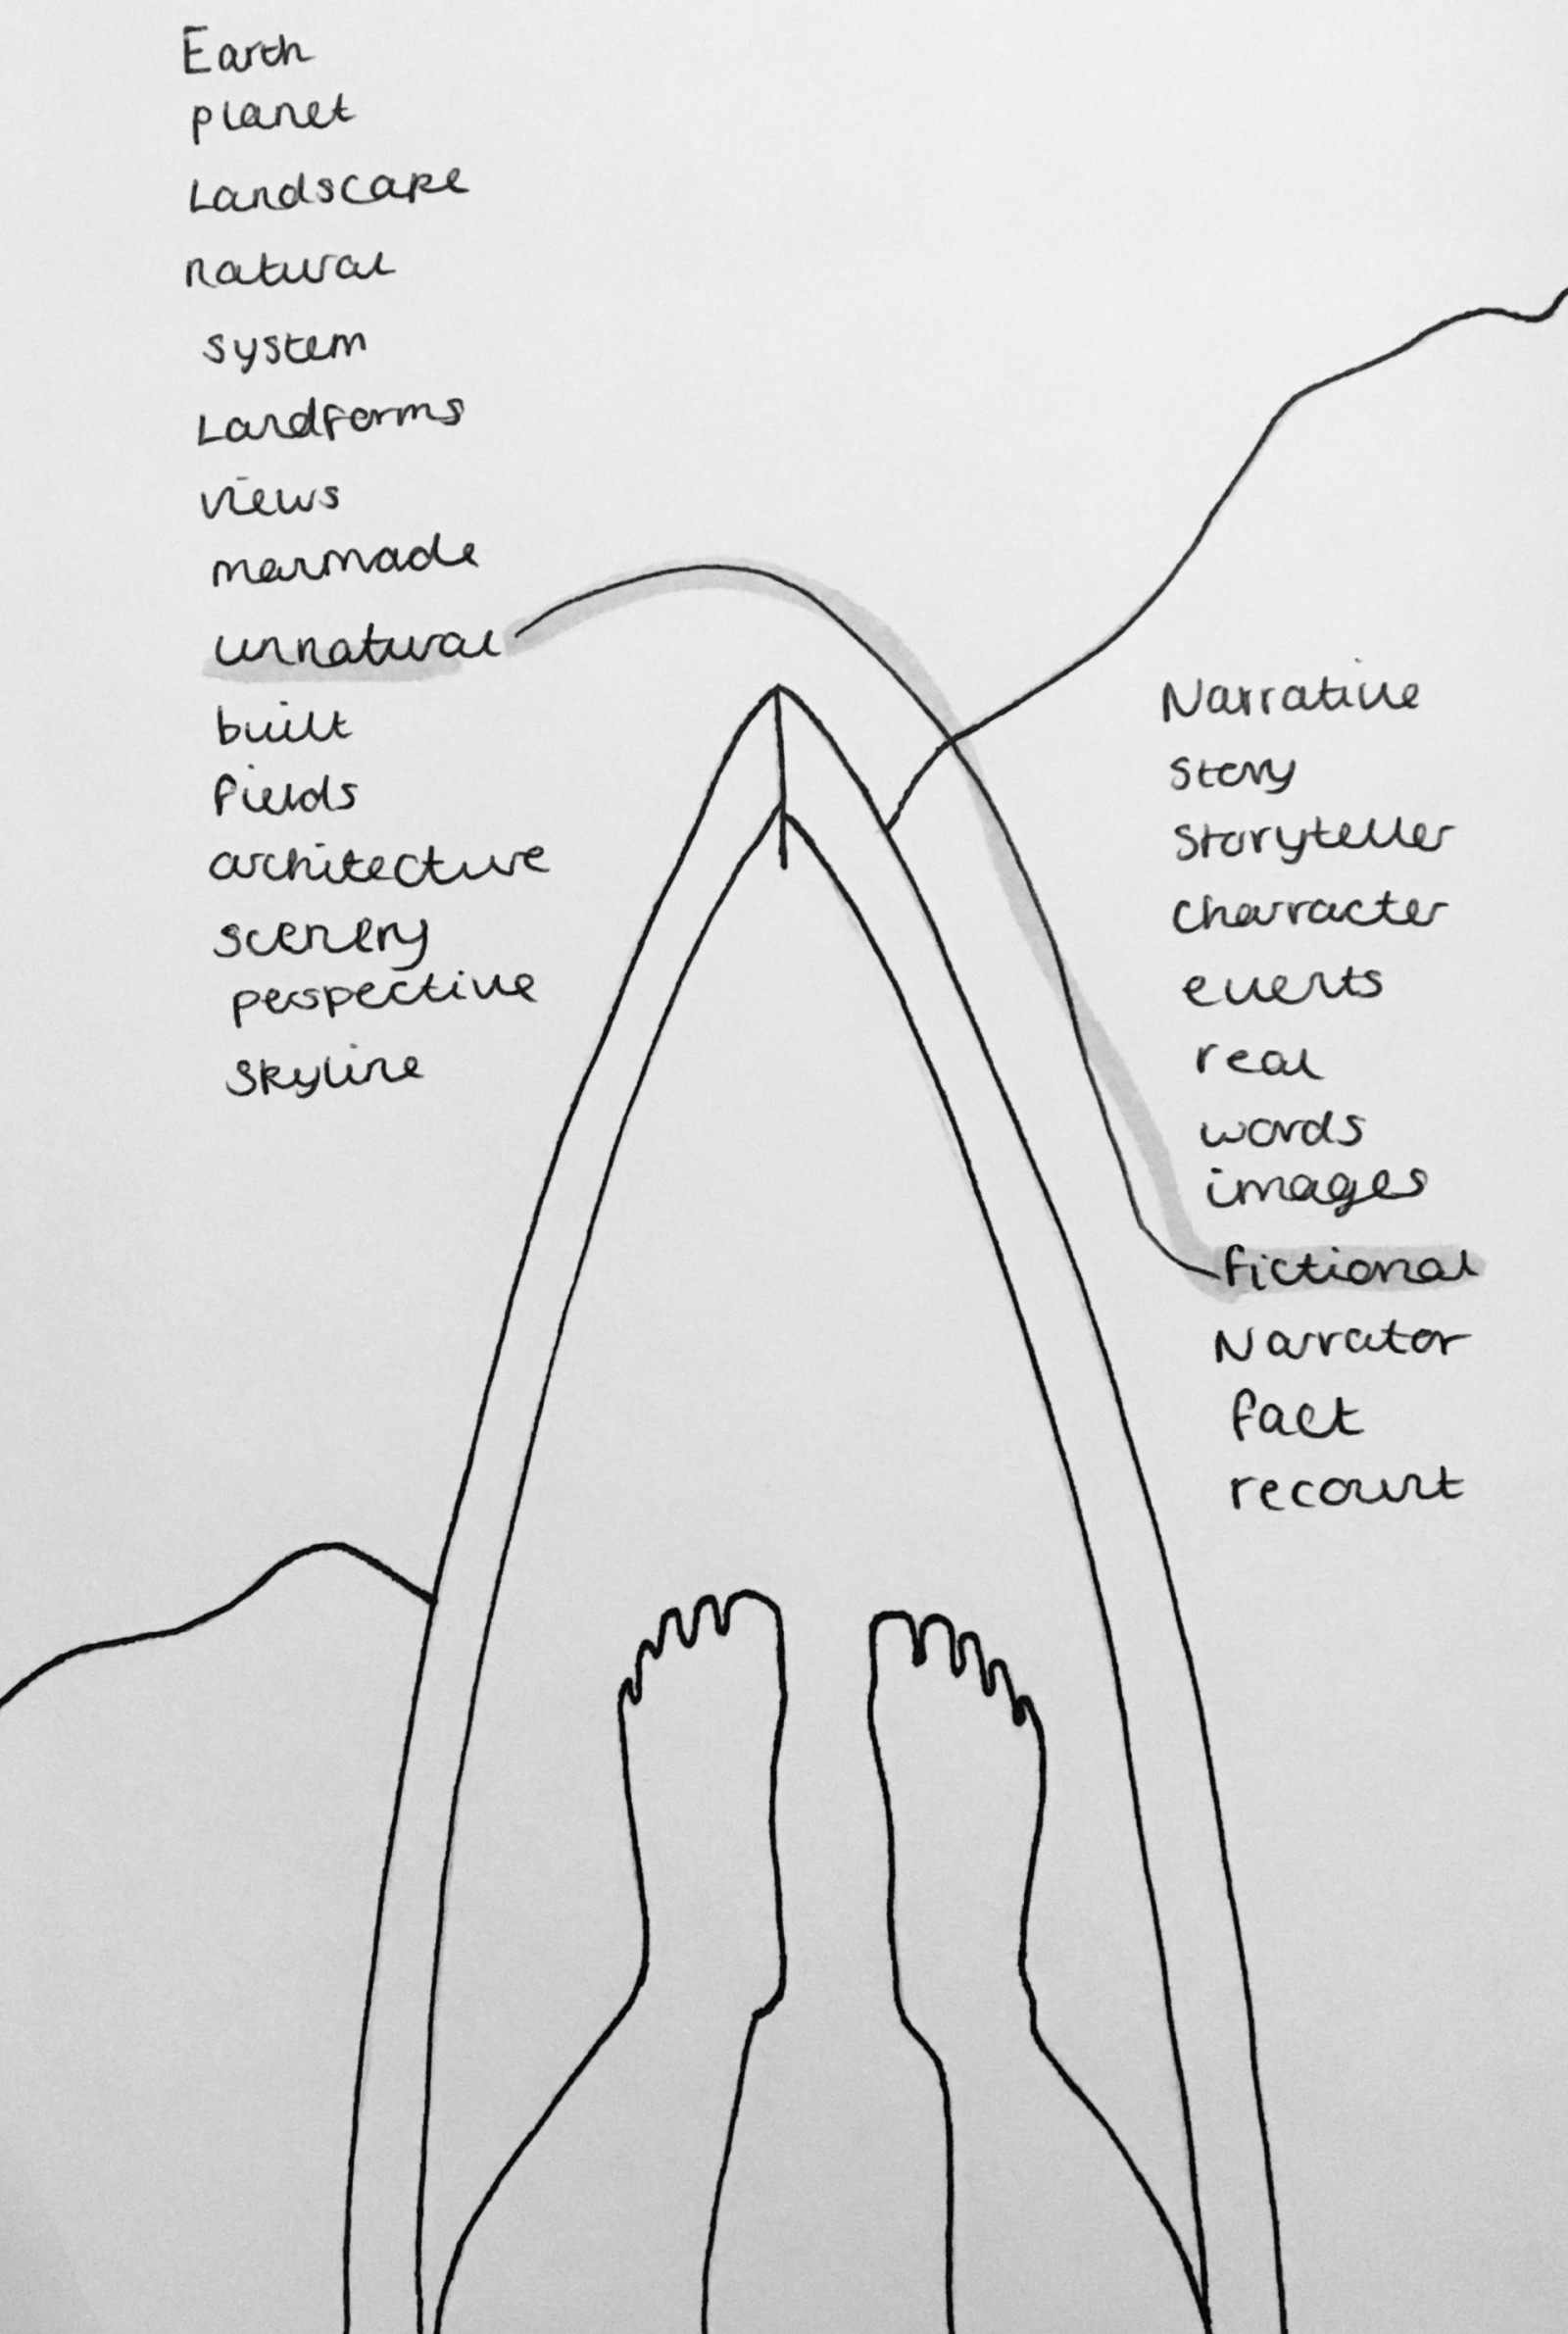 Earth
planet
Landscape
natural
system
Landforms
views
manmade
unnatural
built
fields
architecture
scenery
perspective
skyline
Narrative
story
storyteller
character
events
real
words
images
fictional
Narrator
fact
recount